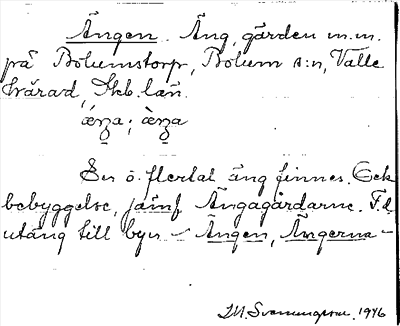 Ängen. Äng, gärden m.m.
på Bolumstorp, Bolum s:n, Valle
härad, Skb. län.
Ser ö. flertal äng finnes. Eck
bebyggelse, jämf Ängagärdarne. F.d.
utäng till byn - Ängen, Ängerna -
J M. Svenungsson. 1946